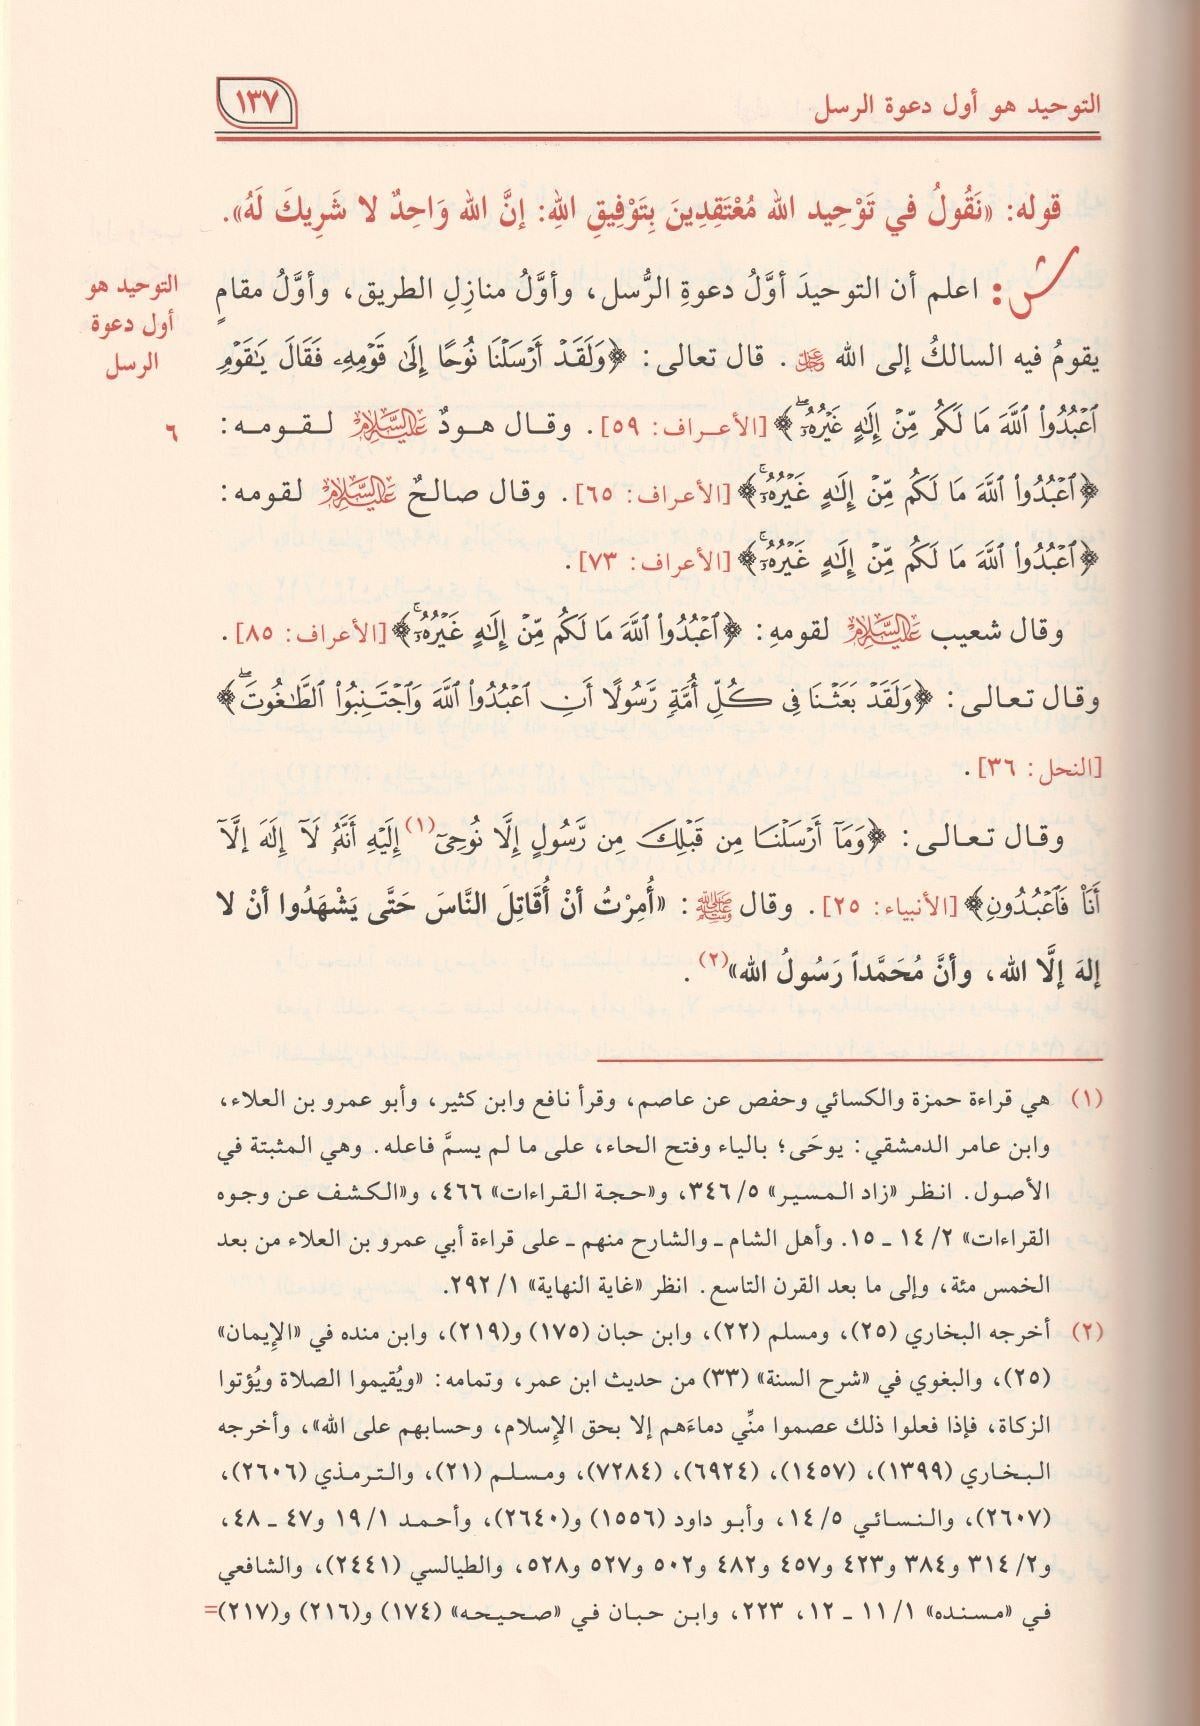 التوحيد هو أول دعوة الرسل
١٣٧
قوله: «نَقُولُ في تَوْحِيد الله مُعْتَقِدِينَ بِتَوْفِيقِ اللهِ: إنَّ الله وَاحِدٌ لا شَرِيكَ لَهُ».
التوحيد هو
أول دعوة
الرسل
٦
ش: اعلم أن التوحيدَ أوَّلُ دعوةِ الرُّسل، وأوَّلُ منازِلِ الطريق، وأوَّلُ مقامٍ
يقومُ فيه السالكُ إلى الله ﷿. قال تعالى: ﴿وَلَقَدْ أَرْسَلْنَا نُوحًا إِلَىٰ قَوْمِهِۦ فَقَالَ يَٰقَوْمِ
ٱعْبُدُوا۟ ٱللَّهَ مَا لَكُم مِّنْ إِلَٰهٍ غَيْرُهُۥٓ ۖ﴾ [الأعراف: ٥٩]. وقال هودٌ عَلَيْهِ السَّلَامُ لقومه:
﴿ٱعْبُدُوا۟ ٱللَّهَ مَا لَكُم مِّنْ إِلَٰهٍ غَيْرُهُۥٓ ۚ﴾ [الأعراف: ٦٥]. وقال صالحٌ عَلَيْهِ السَّلَامُ لقومه:
﴿ٱعْبُدُوا۟ ٱللَّهَ مَا لَكُم مِّنْ إِلَٰهٍ غَيْرُهُۥٓ ۚ﴾ [الأعراف: ٧٣].
وقال شعيب عَلَيْهِ السَّلَامُ لقومهِ: ﴿ٱعْبُدُوا۟ ٱللَّهَ مَا لَكُم مِّنْ إِلَٰهٍ غَيْرُهُۥٓ ۚ﴾ [الأعراف: ٨٥].
وقال تعالى: ﴿وَلَقَدْ بَعَثْنَا فِى كُلِّ أُمَّةٍ رَّسُولًا أَنِ ٱعْبُدُوا۟ ٱللَّهَ وَٱجْتَنِبُوا۟ ٱلطَّٰغُوتَ ۖ﴾
[النحل: ٣٦].
وقال تعالى: ﴿وَمَآ أَرْسَلْنَا مِن قَبْلِكَ مِن رَّسُولٍ إِلَّا نُوحِىٓ(١) إِلَيْهِ أَنَّهُۥ لَآ إِلَٰهَ إِلَّآ
أَنَا۠ فَٱعْبُدُونِ﴾ [الأنبياء: ٢٥]. وقال ﷺ: «أُمِرْتُ أنْ أُقَاتِلَ النَّاسَ حَتَّى يَشْهَدُوا أنْ لا
إلهَ إلَّا الله، وأنَّ مُحَمَّداً رَسُولُ الله»(٢).
(١) هي قراءة حمزة والكسائي وحفص عن عاصم، وقرأ نافع وابن كثير، وأبو عمرو بن العلاء،
وابن عامر الدمشقي: يوحَى؛ بالياء وفتح الحاء، على ما لم يسمَّ فاعله. وهي المثبتة في
الأصول. انظر «زاد المسير» ٥/ ٣٤٦، و«حجة القراءات» ٤٦٦، و«الكشف عن وجوه
القراءات» ٢/ ١٤ ـ ١٥. وأهل الشام ـ والشارح منهم ـ على قراءة أبي عمرو بن العلاء من بعد
الخمس مئة، وإلى ما بعد القرن التاسع. انظر «غاية النهاية» ١/ ٢٩٢.
(٢) أخرجه البخاري (٢٥)، ومسلم (٢٢)، وابن حبان (١٧٥) و(٢١٩)، وابن منده في «الإيمان»
(٢٥)، والبغوي في «شرح السنة» (٣٣) من حديث ابن عمر، وتمامه: «ويُقيموا الصلاة ويُؤتوا
الزكاة، فإذا فعلوا ذلك عصموا منِّي دماءَهم إلا بحق الإسلام، وحسابهم على الله»، وأخرجه
البخاري (١٣٩٩)، (١٤٥٧)، (٦٩٢٤)، (٧٢٨٤)، ومسلم (٢١)، والترمذي (٢٦٠٦)،
(٢٦٠٧)، والنسائي ٥/ ١٤، وأبو داود (١٥٥٦) و(٢٦٤٠)، وأحمد ١/ ١٩ و٤٧ ـ ٤٨،
و٢/ ٣١٤ و٣٨٤ و٤٢٣ و٤٥٧ و٤٨٢ و٥٠٢ و٥٢٧ و٥٢٨، والطيالسي (٢٤٤١)، والشافعي
في «مسنده» ١/ ١١ ـ ١٢، ٢٢٣، وابن حبان في «صحيحه» (١٧٤) و(٢١٦) و(٢١٧)=